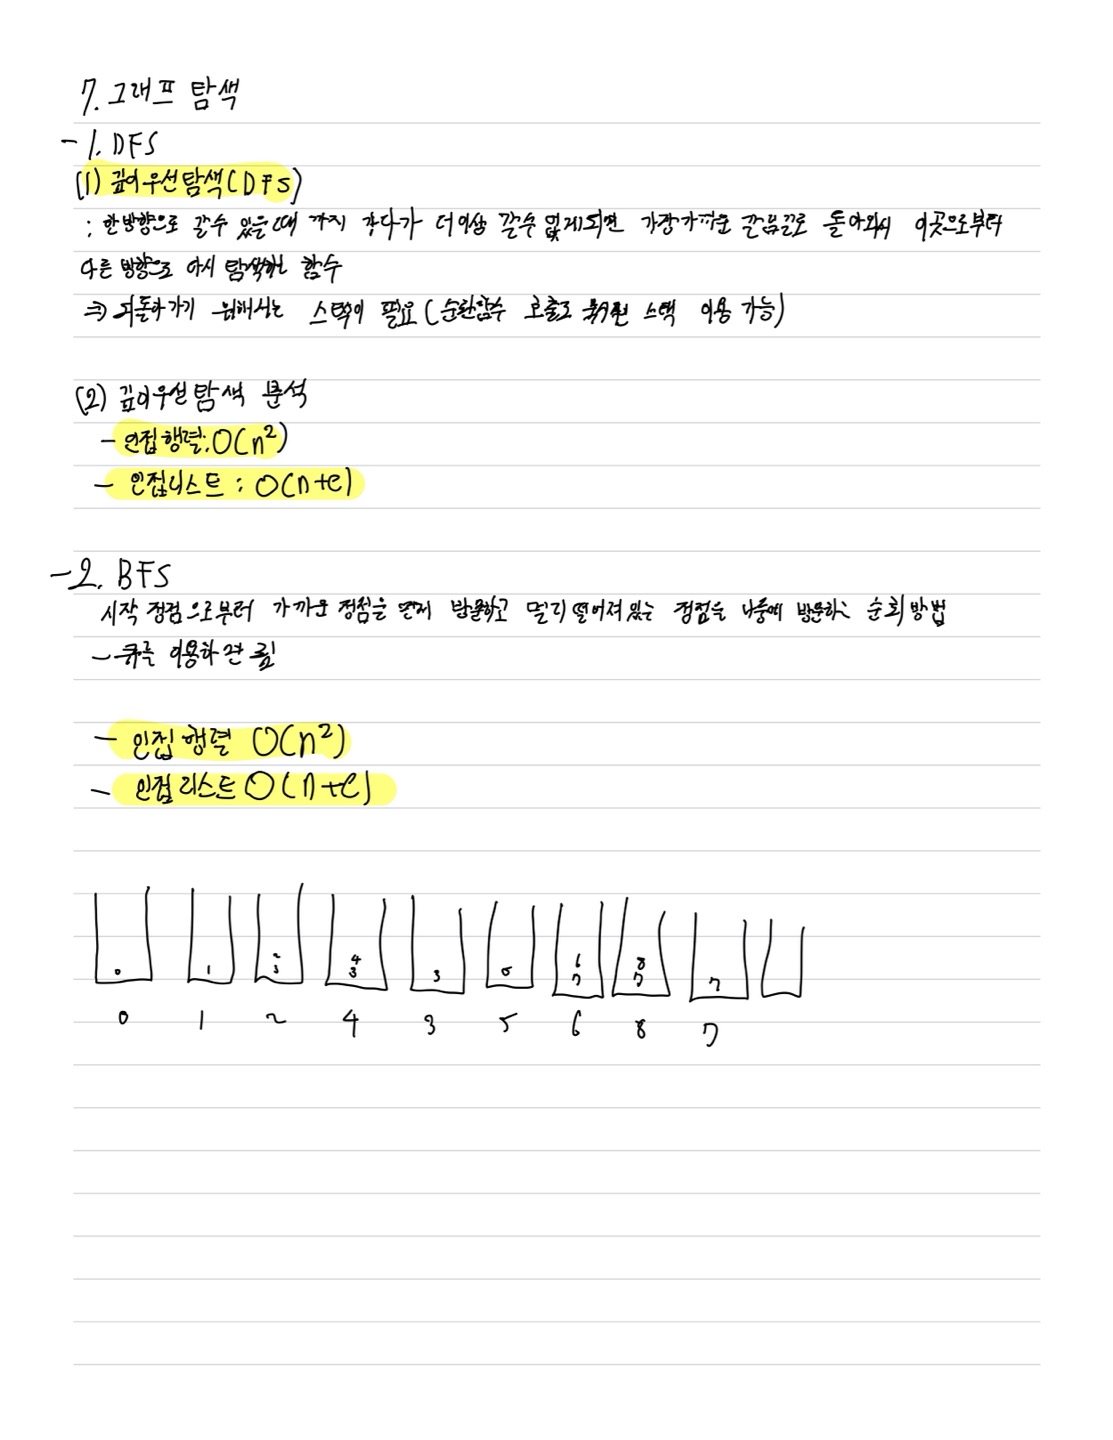 7. 그래프 탐색
- 1. DFS
(1) 깊이우선탐색(DFS)
: 한방향으로 갈수 있을때 까지 가다가 더이상 갈수 없게되면 가장가까운 갈림길로 돌아와서 이곳으로부터
다른 방향으로 다시 탐색하는 함수
⇒ 되돌아가기 위해서는 스택이 필요 (순환함수 호출로 묵시적 스택 이용 가능)
(2) 깊이우선탐색 분석
- 인접행렬: O(n²)
- 인접리스트 : O(n+e)
- 2. BFS
시작 정점으로부터 가까운 정점을 먼저 방문하고 멀리 떨어져있는 정점을 나중에 방문하는 순회 방법
- 큐를 이용하면 됨
- 인접 행렬 O(n²)
- 인접 리스트 O(n+e)
0 1 2 4 8 6 8
0 1 3 3 3 5 7 7 7
0 1 2 4 3 5 6 8 7